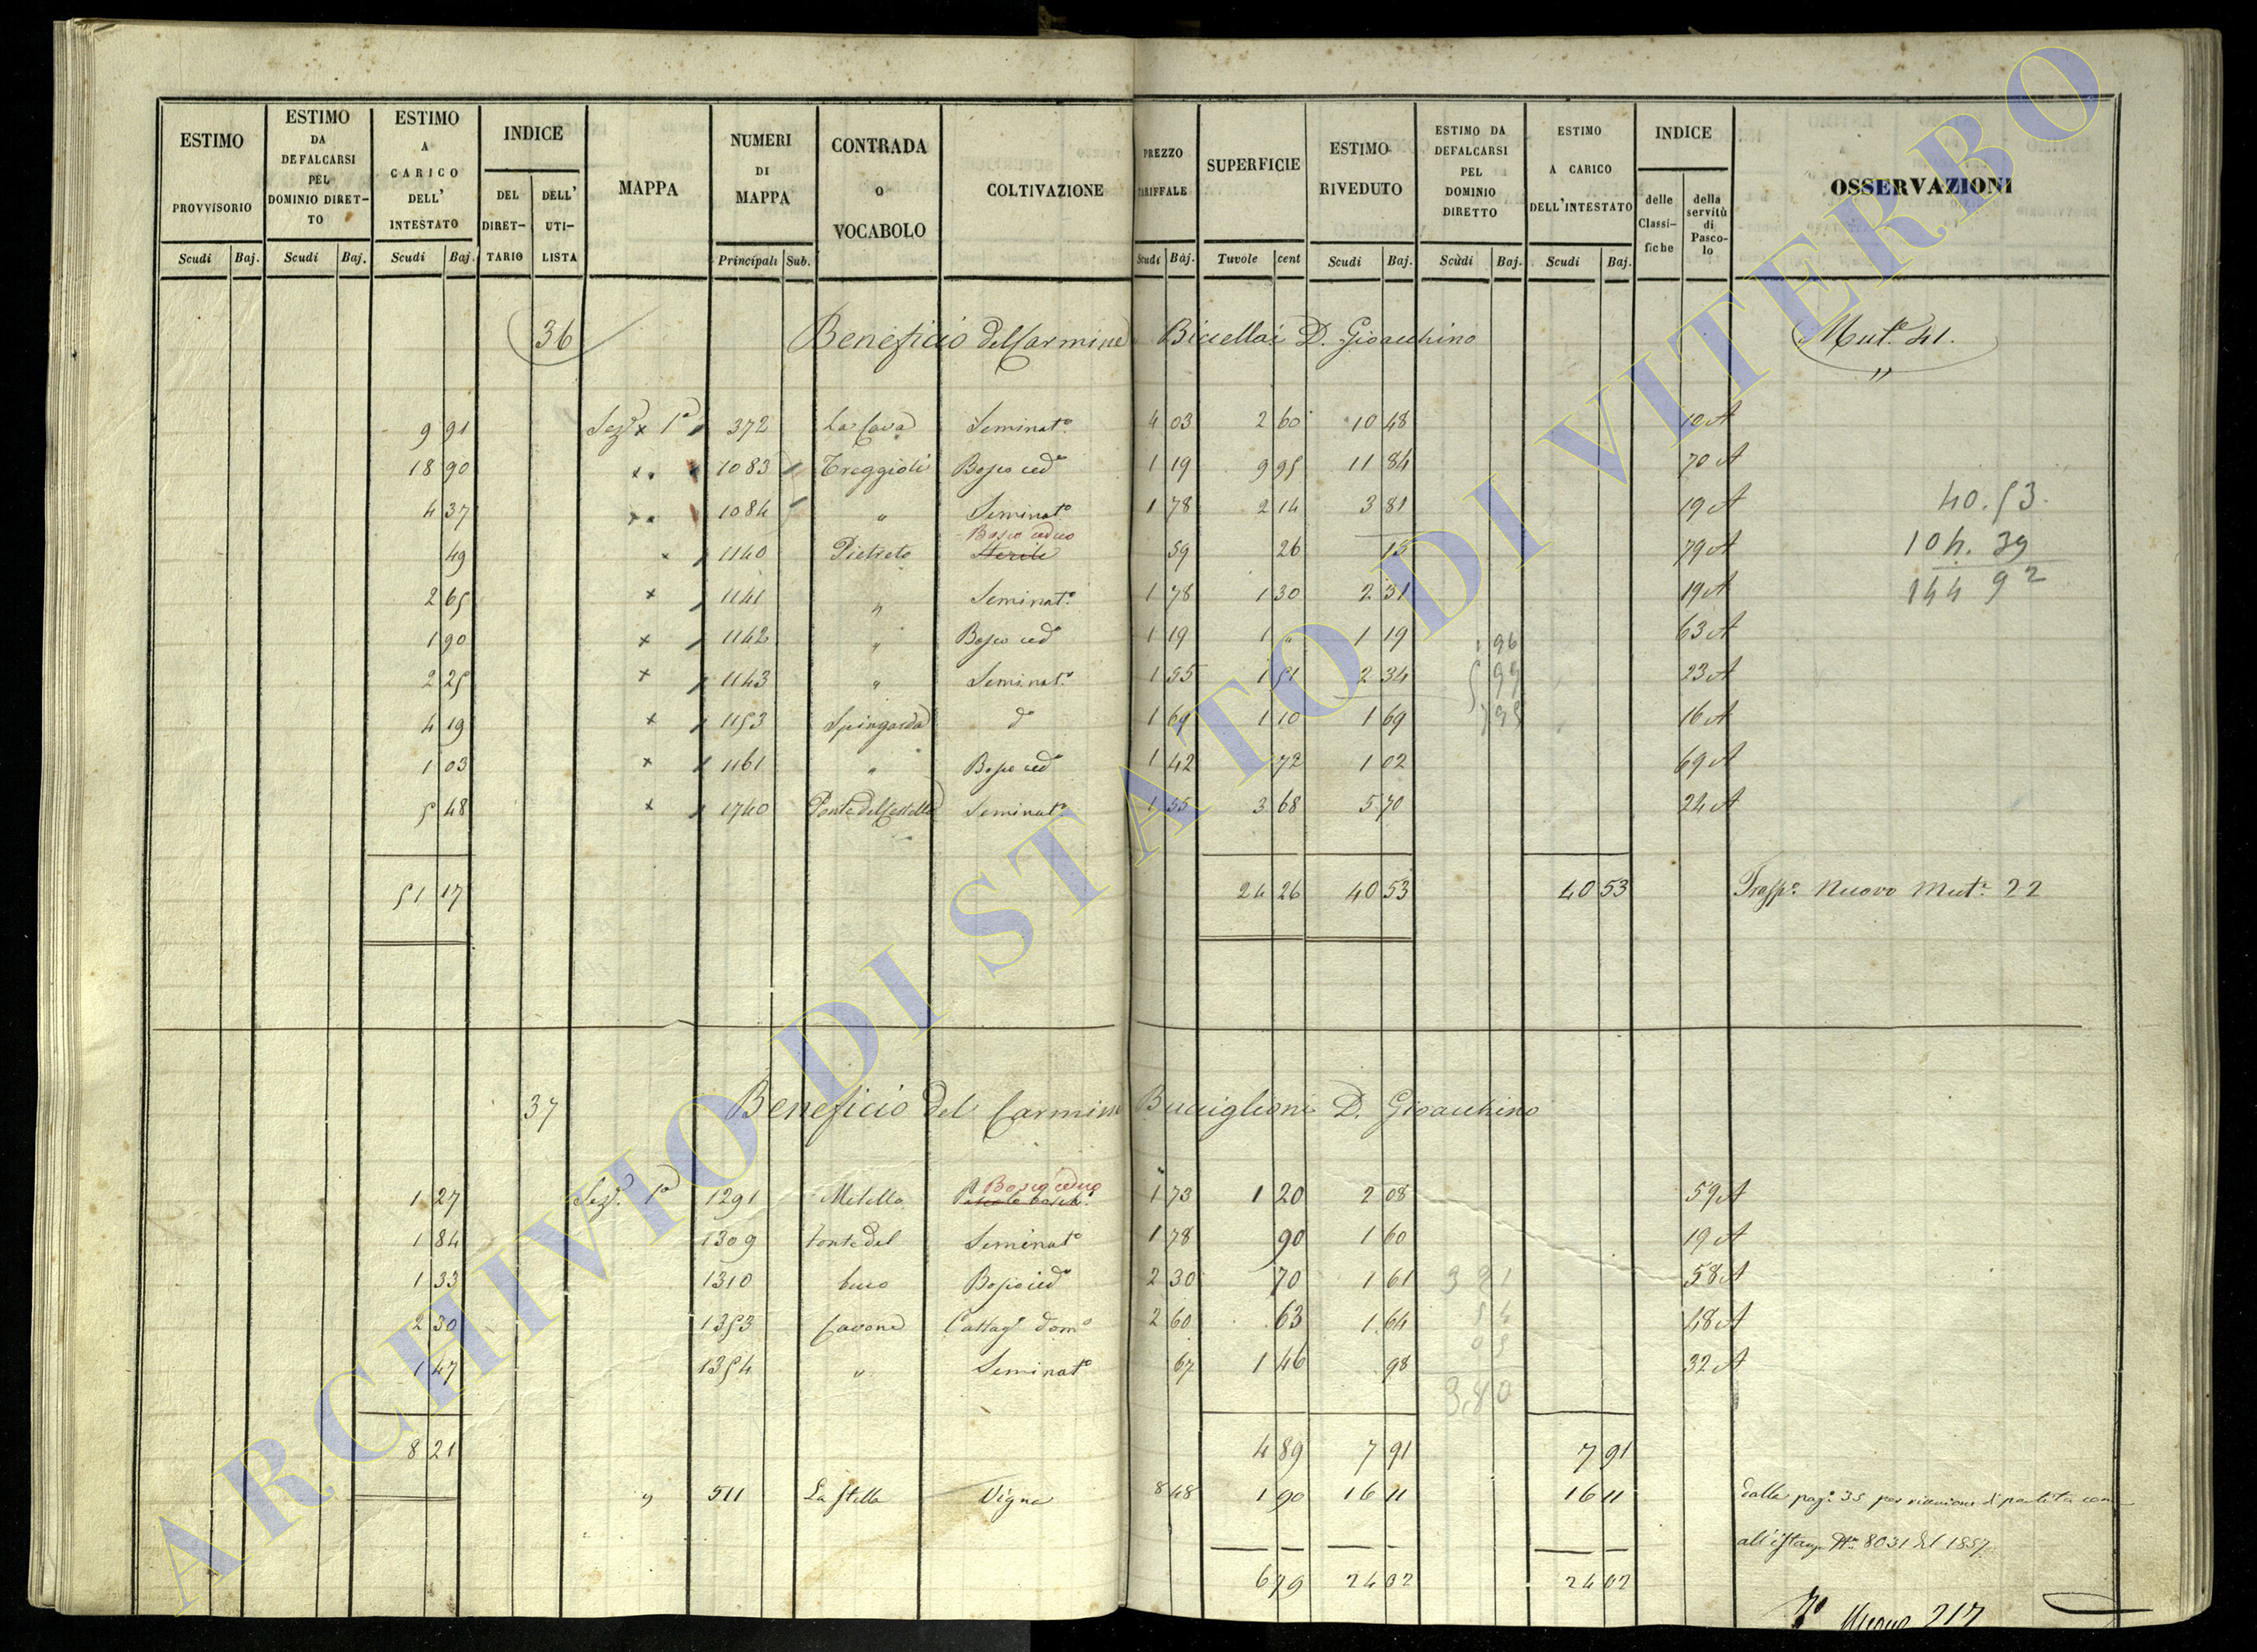 ESTIMO PROVVISORIO
ESTIMO DA DEFALCARSI PEL DOMINIO DIRET-TO
ESTIMO A CARICO DELL' INTESTATO
INDICE
DEL DIRET-TARIO
DELL' UTI-LISTA
MAPPA
NUMERI DI MAPPA
CONTRADA O VOCABOLO
COLTIVAZIONE
PREZZO TARIFFALE
SUPERFICIE
ESTIMO RIVEDUTO
ESTIMO DA DEFALCARSI PEL DOMINIO DIRETTO
ESTIMO A CARICO DELL'INTESTATO
INDICE
delle Classi-fiche
della servitù di Pasco-lo
OSSERVAZIONI
Scudi Baj. Scudi Baj. Scudi Baj. Principali Sub. Scudi Baj. Tavole cent Scudi Baj. Scudi Baj. Scudi Baj.
36 Beneficio del Carmine Biccellai D. Gioacchino Mut.e 41.
"
9 91 Sez.e 1a 372 La Cava Seminat.o 4 03 2 60 10 48 10 A
18 90 1083 Treggioli Bosco ced.o 1 19 9 95 11 84 70 A
4 37 1084 " Seminat.o 1 78 2 14 3 81 19 A
40.53
Bosco ceduo
49 1140 Pietreto Sterile 59 26 15 79 A
104.39
2 65 1141 " Seminat.o 1 78 1 30 2 31 19 A
144 92
1 90 1142 " Bosco ced.o 1 19 1 " 1 19 63 A
96
2 25 1143 " Seminat.o 1 55 1 51 2 34 23 A
5 99
4 19 1153 Spingarda d.o 1 69 1 10 1 69 16 A
1 03 1161 " Bosco ced.o 1 42 72 1 02 69 A
5 48 1740 Ponte del Castello Seminat.o 1 55 3 68 5 70 24 A
51 17 24 26 40 53 40 53 Trasp.o Nuovo Mut.e 22
37 Beneficio del Carmine Bucciglioni D. Gioacchino
Bosco ceduo
1 27 Sez.e 1a 1291 Metella Pascolo bosch.o 1 73 1 20 2 08 59 A
1 84 1309 Fonte del Seminat.o 1 78 90 1 60 19 A
1 33 1310 buco Bosco ced.o 2 30 70 1 61 58 A
3 21
2 30 1353 Cavone Castag.o dom.o 2 60 63 1 64 48 A
54
05
1 47 1354 " Seminat.o 67 1 46 98 32 A
3.80
8 21 4 89 7 91 7 91
" 511 La Stella Vigna 8 48 1 90 16 11 16 11 dalla pag.a 35 per riunione di partita com
all'istanza N.o 8031 del 1857
6 79 24 02 24 02
Nuovo 217
ARCHIVIO DI STATO DI VITERBO